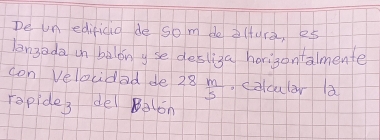 De un edificio de 50 m de altura, es
lanzada un balón y se desliza horizontalmente
con velocidad de 28 m/s. calcular la
rapidez del Balón